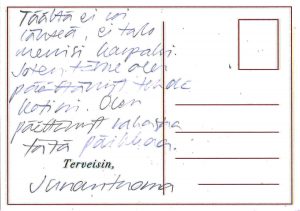 Täältä ei voi
lähteä, ei talo
menisi kaupaksi
Joten tänne olen
päättänyt tehdä
kotini. Olen
päättänyt rakastaa
tätä paikkaa.
Terveisin,